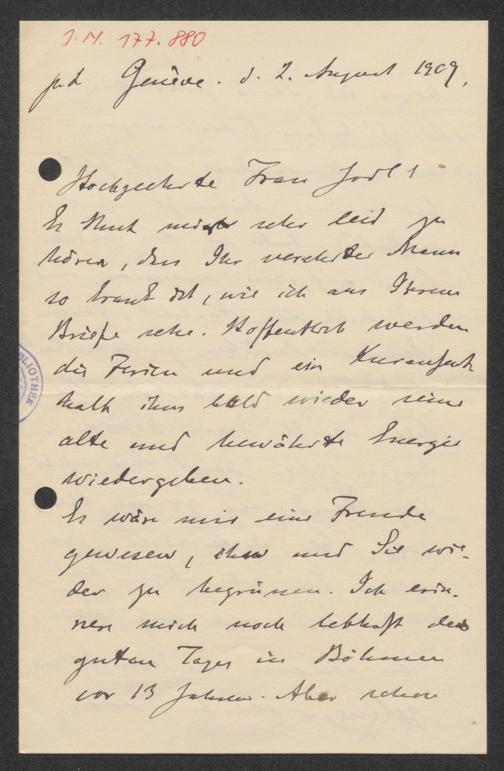 J.N. 177.880
Genève. d. 2. August 1909,
Hochgeehrte Frau Jodl!
Es thut mir sehr leid zu
hören, dass Ihr verehrter Mann
so krank ist, wie ich aus Ihrem
Briefe sehe. Hoffentlich werden
die Ferien und ein Kuraufent-
halt ihm bald wieder seine
alte und bewährte Energie
wiedergeben.
Es wäre mir eine Freude
gewesen, ihn und Sie wie-
der zu begrüssen. Ich erin-
nere mich noch lebhaft der
guten Tage in Böhmen
vor 13 Jahren. Aber schon
BLIOTHEK